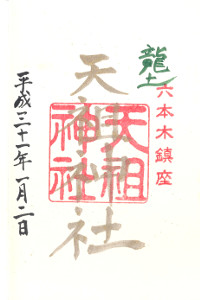 龍土
六本木鎮座
天祖神社
天祖
神社
平成三十一年一月二日